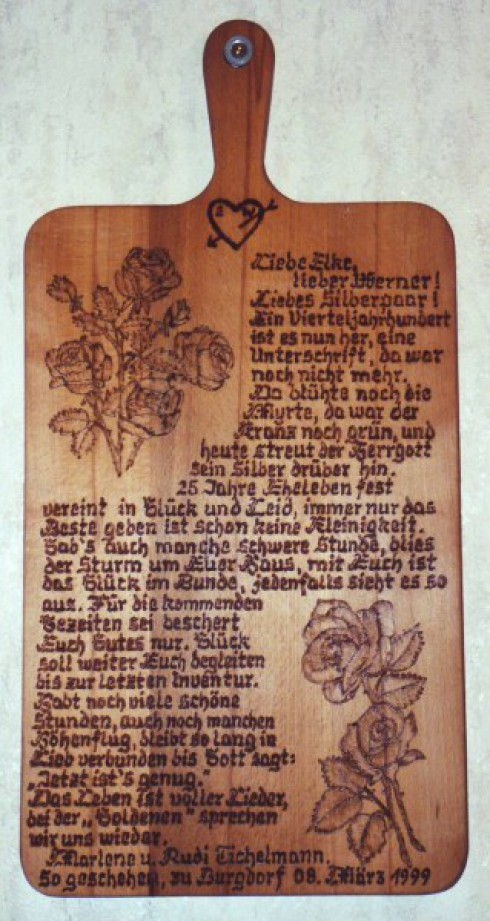 E W
Liebe Elke,
lieber Werner!
Liebes Silberpaar!
Ein Vierteljahrhundert
ist es nun her, eine
Unterschrift, da war
noch nicht mehr.
Da blühte noch die
Myrte, da war der
Kranz noch grün, und
heute streut der Herrgott
sein Silber drüber hin.
25 Jahre Eheleben fest
vereint in Glück und Leid, immer nur das
Beste geben ist schon keine Kleinigkeit.
Gab's auch manche schwere Stunde, blies
der Sturm um Euer Haus, mit Euch ist
das Glück im Bunde, jedenfalls sieht es so
aus. Für die kommenden
Gezeiten sei beschert
Euch Gutes nur. Glück
soll weiter Euch begleiten
bis zur letzten Inventur.
Habt noch viele schöne
Stunden, auch noch manchen
Höhenflug, bleibt so lang in
Lieb verbunden bis Gott sagt:
„Jetzt ist's genug."
Das Leben ist voller Lieder,
bei der „Goldenen" sprechen
wir uns wieder.
Marlene u. Rudi Tichelmann.
So geschehen, zu Burgdorf 08. März 1999